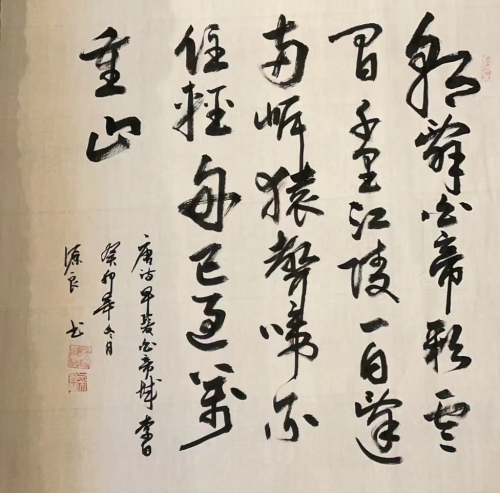 朝辭白帝彩雲
間千里江陵一日還
兩岸猿聲啼不
住輕舟已過萬
重山
唐诗早發白帝城 李白
癸卯年冬月
良 书